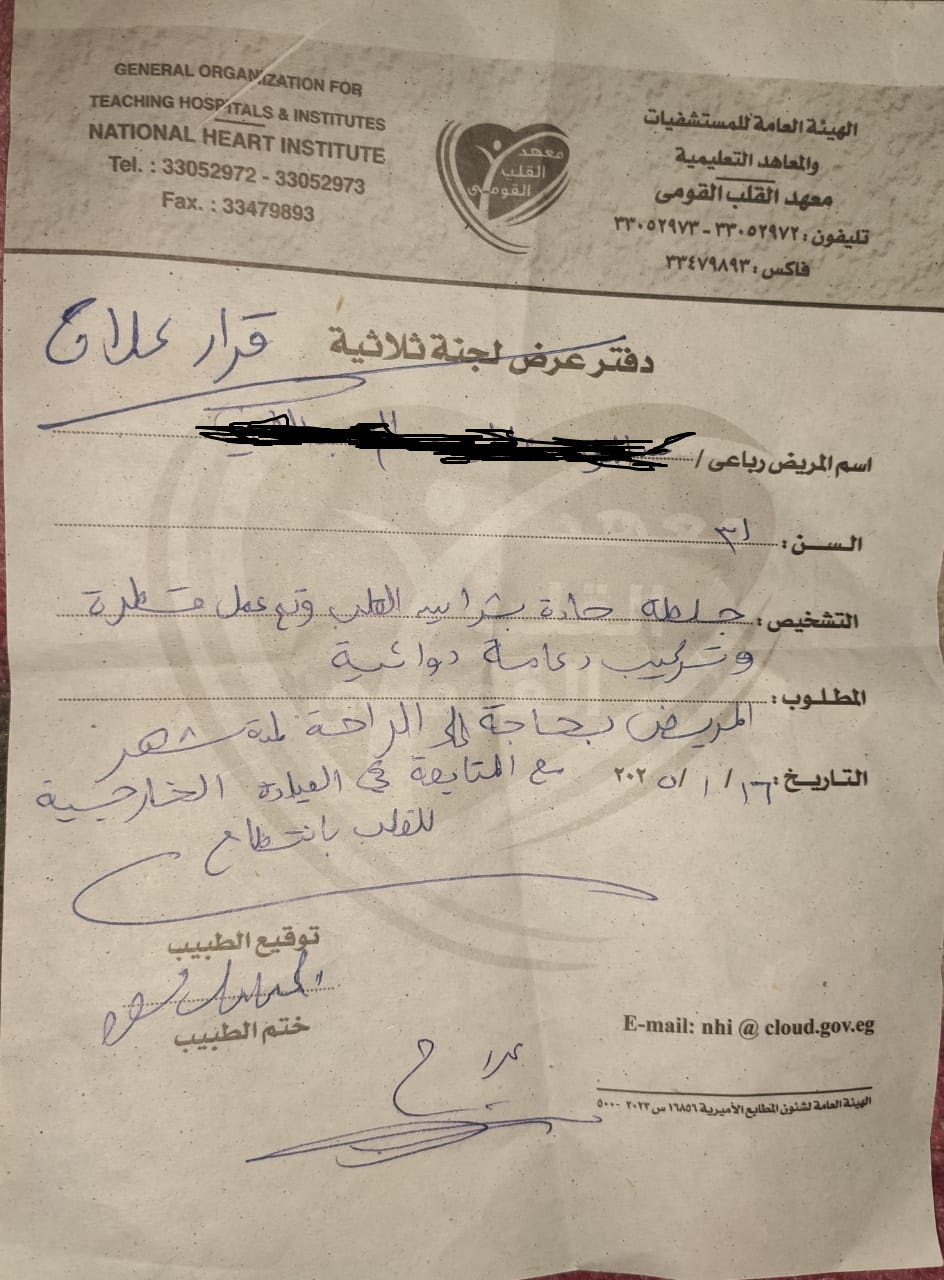 GENERAL ORGANIZATION FOR
TEACHING HOSPITALS & INSTITUTES
NATIONAL HEART INSTITUTE
Tel. : 33052972 - 33052973
Fax. : 33479893
معهد
القلب
القومى
الهيئة العامة للمستشفيات
والمعاهد التعليمية
معهد القلب القومى
تليفون : ٣٣٠٥٢٩٧٢ - ٣٣٠٥٢٩٧٣
فاكس : ٣٣٤٧٩٨٩٣
دفتر عرض لجنة ثلاثية
قرار علاج
اسم المريض رباعى /
السن : ٣١
التشخيص : جلطة حادة بشرايين القلب وتم عمل قسطرة
وتركيب دعامة دوائية
المطلوب :
المريض بحاجة إلى الراحة لمدة شهر
التاريخ : ١٦ / ١ / ٢٠٢٥ مع المتابعة في العيادة الخارجية
للقلب بانتظام
توقيع الطبيب
ختم الطبيب
E-mail: nhi @ cloud.gov.eg
الهيئة العامة لشئون المطابع الأميرية ١٦٨٥٦ س ٢٠٢٣ - ٥٠٠